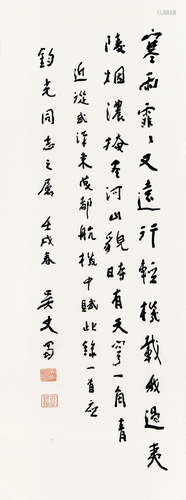 寒雨霏霏又远行轻机载我过夷
陵烟浓掩尽河山貌时有天穹一角青
近从武汉来成都航机中赋此录一首应
钧光同志之属 壬戌春 吴丈蜀